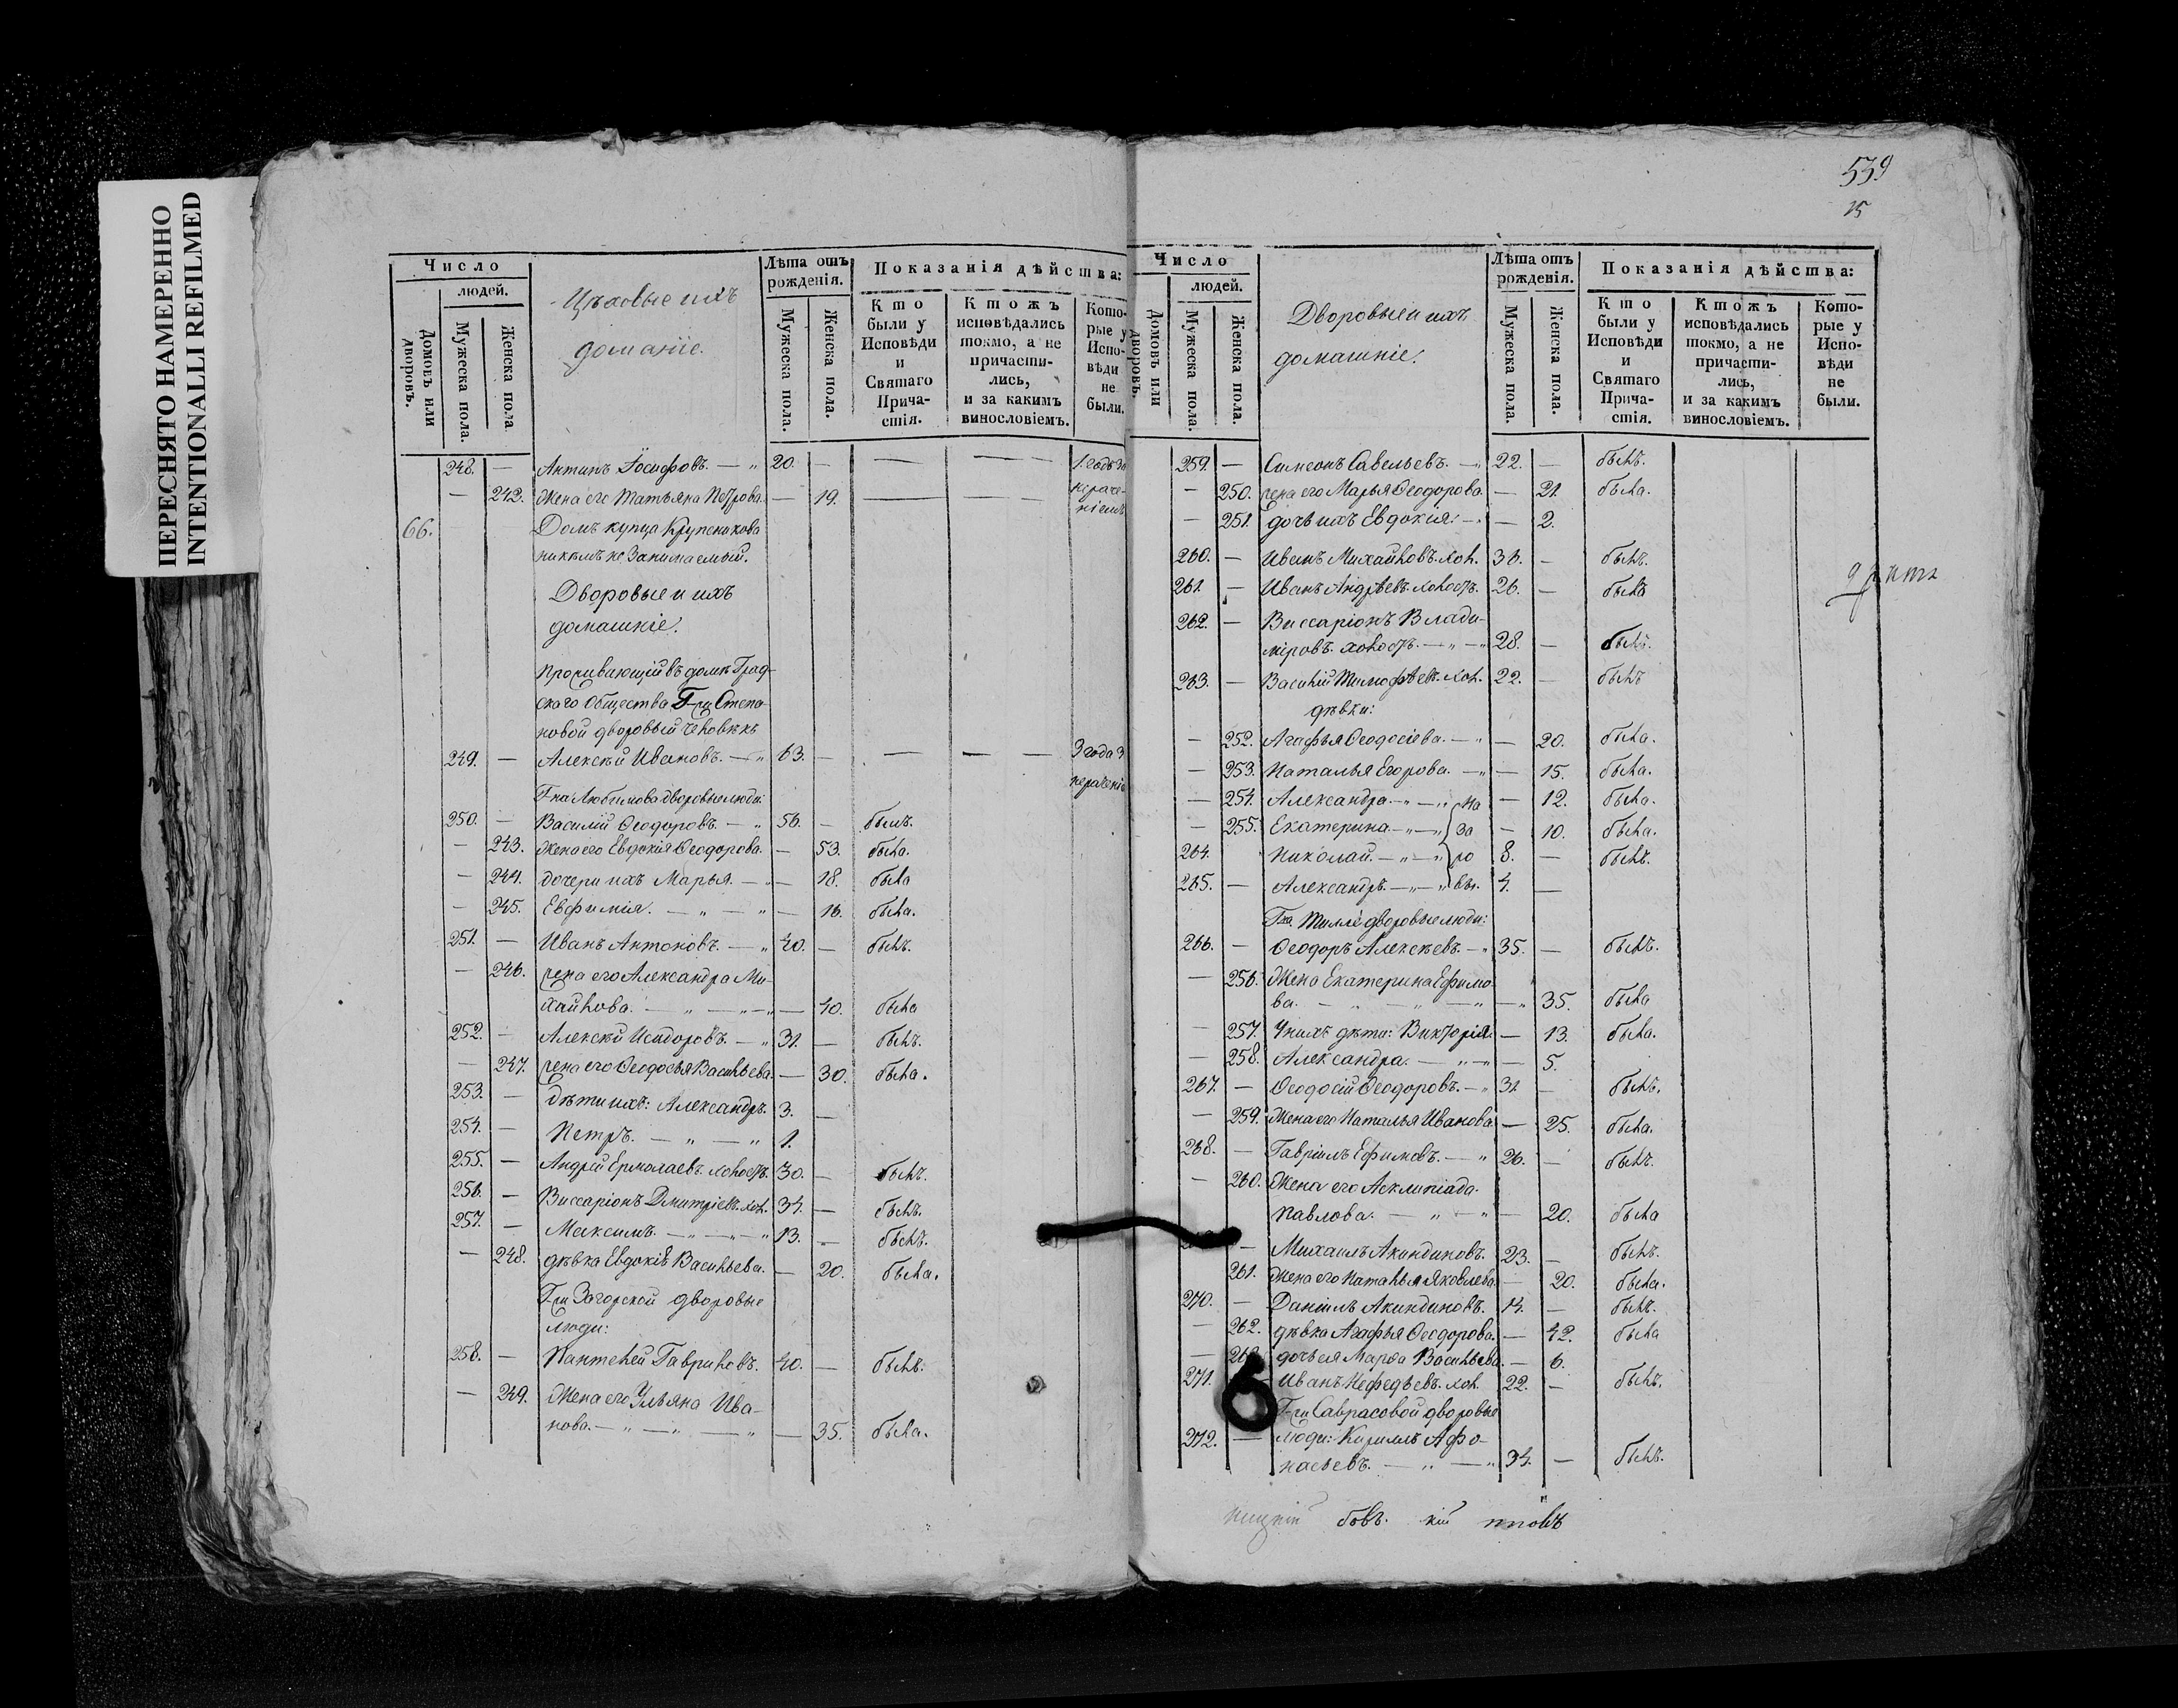 ПЕРЕСНЯТО НАМЕРЕННО
INTENTIONALLI REFILMED
Число
людей.
Домовъ или дворовъ.
Мужеска пола.
Женска пола.
Цѣховые ихъ
домашніе.
Лѣта отъ рожденія.
Мужеска пола.
Женска пола.
Показанія дѣйства:
Кто были у Исповѣди и Святаго Причастія.
Ктожъ исповѣдались токмо, а не причастились, и за какимъ винословіемъ.
Которые у Исповѣди не были.
248. — Антипъ Іосифовъ. — „ 20. — — — — 1. годъ за
— 242. Жена его Татьяна Петрова. — 19. — — — нераче-
ніемъ
66. Домъ купца Крупеникова
никѣмъ не Занимаемый.
Дворовые и ихъ
домашніе.
Проживающій въ домѣ Град-
скаго Общества Г-жи Степа-
новой дворовый человѣкъ
249. — Алексѣй Ивановъ. — „ 63. — — — — 3 года з
нераченіе
Г-на Любимова дворовые люди:
250. — Василій Ѳеодоровъ. — „ 56. — былъ.
— 243. Жена его Евдокія Ѳеодорова. — 53. была.
— 244. дочери ихъ Марья. — „ — 18. была
— 245. Евфимія. — „ — „ — 16. была.
251. — Иванъ Антоновъ. — „ 40. — былъ.
— 246. жена его Александра Ми-
хайлова. — „ — „ — „ — 40. была
252. — Алексѣй Исидоровъ. — „ 31. — былъ.
— 247. жена его Ѳеодосья Васильева. — 30. была.
253. — дѣти ихъ: Александръ. 3. —
254. — Петръ. — „ — „ 1.
255. — Андрей Ермолаевъ. холостъ. 30. — былъ.
256. — Виссаріонъ Дмитріевъ. хол. 34. — былъ.
257. — Максимъ. — „ — „ — „ 13. — былъ.
— 248. дѣвка Евдокія Васильева. — 20. была.
Г-жи Загорской дворовые
люди:
258. — Пантелей Гавриловъ. 40. — былъ.
— 249. Жена его Ульяна Ива-
нова. — „ — „ — „ — 35. была.
539
15
Число
людей.
Домовъ или дворовъ.
Мужеска пола.
Женска пола.
Дворовые и ихъ
домашніе.
Лѣта отъ рожденія.
Мужеска пола.
Женска пола.
Показанія дѣйства:
Кто были у Исповѣди и Святаго Причастія.
Ктожъ исповѣдались токмо, а не причастились, и за какимъ винословіемъ.
Которые у Исповѣди не были.
259. — Симеонъ Савельевъ. — „ 22. — былъ.
— 250. жена его Марья Ѳеодорова. — 21. была.
— 251. дочь ихъ Евдокія: — „ — 2.
260. — Иванъ Михайловъ. хол. 36. — былъ.
261. — Иванъ Андрѣевъ. холостъ. 26. — былъ
262. — Виссаріонъ Влади-
міровъ. холостъ. — „ — „ 28. — былъ.
263. — Василій Тимофѣевъ. хол. 22. — былъ
дѣвки:
— 252. Агафья Ѳеодосіева. — „ — 20. была.
— 253. Наталья Егорова. — „ — 15. была.
— 254. Александра. — „ — „ На — 12. была.
— 255. Екатерина. — „ — „ За — 10. была.
264. Николай. — „ — „ ро 8. — былъ.
265. — Александръ. — „ — „ вы. 4. —
Г-на Тилле дворовые люди:
266. — Ѳеодоръ Алексѣевъ. — „ 35. — былъ.
— 256. Жена Екатерина Ефимо-
ва. — „ — „ — „ — „ 35. была
— 257. У нихъ дѣти: Викторія. — 13. была.
— 258. Александра. — „ — „ — 5.
267. — Ѳеодосій Ѳеодоровъ. — „ 31. — былъ.
— 259. Жена его Наталья Иванова. — 25. была.
268. — Гавріилъ Ефимовъ. — „ 26. — былъ.
— 260. Жена его Асклипіада.
Павлова. — „ — „ — 20. была
— Михаилъ Акиндиновъ. 23. — былъ.
261. Жена его Наталья Яковлева. — 20. была.
270. — Даніилъ Акиндиновъ. 14. — былъ.
— 262. дѣвка Агафья Ѳеодорова. — 42. была
— 263. дочь ея Марѳа Васильева. — 6.
271. Иванъ Нефедьевъ. хол. 22. — былъ.
Г-жи Саврасовой дворовые
272. — люди: Кириллъ Афо-
насьевъ. — „ — „ 34. — былъ.